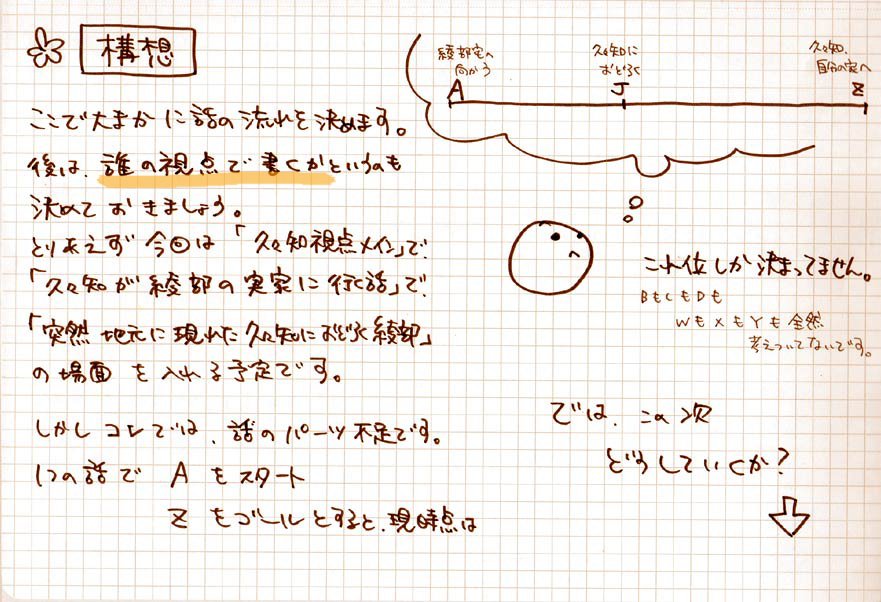 構想
ここで大まかに話の流れを決めます。
後は、誰の視点で書くかというのも
決めておきましょう。
とりあえず今回は「久々知視点メイン」で、
「久々知が綾部の実家に行く話」で、
「突然地元に現れた久々知におどろく綾部」
の場面を入れる予定です。
しかしコレでは、話のパーツ不足です。
1つの話で A をスタート
Z をゴールとすると、現時点は
綾部宅へ
向かう
A
久々知に
おどろく
J
久々知、
自分の家へ
Z
これ位しか決まってません。
BもCもDも
WもXもYも全然
考えついてないです。
では、この次
どうしていくか?